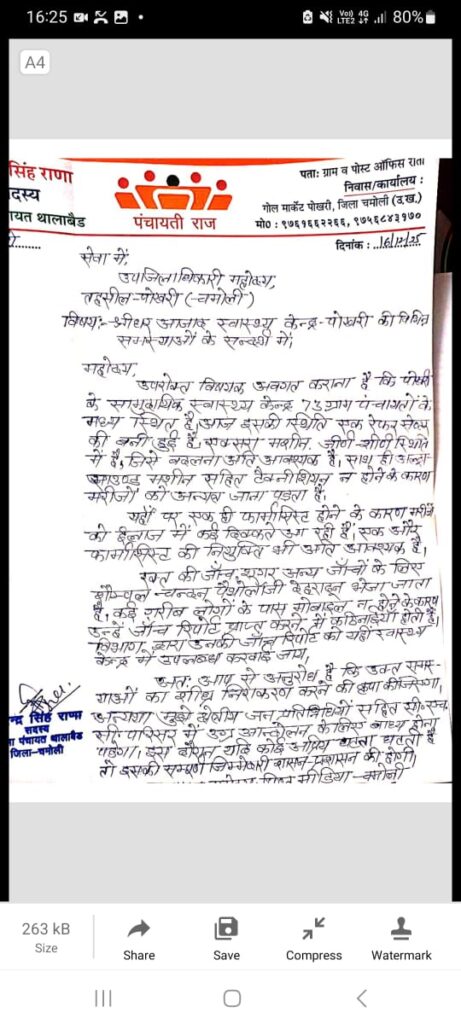 16:25
Vo)) 4G
LTE2
80%
A4
सिंह राणा
दस्य
ायत थालाबैड
पंचायती राज
पता: ग्राम व पोस्ट ऑफिस राता
निवास/कार्यालय :
गोल मार्केट पोखरी, जिला चमोली (उ.ख.)
मो० : ९७६१६६२२६६, ९७५६८४३१७०
दिनांक : 16/12/25
सेवा में,
उपजिलाधिकारी महोदय,
तहसील-पोखरी (चमोली)
विषय:- श्रीधर आजाद स्वास्थ्य केन्द्र-पोखरी की विभिन्न
समस्याओं के सन्दर्भ में।
महोदय,
उपरोक्त विषयक अवगत कराना है कि पोखरी
के सामुदायिक स्वास्थ्य केन्द्र 73 ग्राम पंचायतों के
मध्य स्थित है, आज इसकी स्थिति एक रेफर सेन्टर
की बनी हुई है। एक्सरा मशीन, जीर्ण शीर्ण स्थिति
में है, जिसे बदलना अति आवश्यक है, साथ ही अल्ट्रा
साउण्ड मशीन सहित टैक्नीशियन न होने के कारण
मरीजों को अन्यत्र जाना पड़ता है।
यहाँ पर एक ही फार्मासिस्ट होने के कारण मरीजों
को ईलाज में कई दिक्कते आ रही है, एक और
फार्मासिस्ट की नियुक्ति भी अति आवश्यक है,
रक्त की जाँच अन्य जाँचों के लिए
सैम्पल चन्दन पैथोलॉजी देहरादून भेजा जाता
है, कई गरीब लोगों के पास मोबाइल न होने के कारण
उन्हें जाँच रिपोर्ट प्राप्त करने में कठिनाइयां होती है।
विभाग द्वारा उनकी जाँच रिपोर्ट को यहीं स्वास्थ्य
केन्द्र में उपलब्ध करवाई जाय,
अतः आप से अनुरोध है कि उक्त समस्-
याओं का शीघ्र निराकरण करने की कृपा कीजिएगा,
अन्यथा मुझे क्षेत्रीय जन प्रतिनिधियों सहित सी०एच०
सी० परिसर में उग्र आन्दोलन के लिए बाध्य होना
पड़ेगा। इस दौरान यदि कोई अप्रिय घटना घटती है
तो इसकी सम्पूर्ण जिम्मेदारी शासन-प्रशासन की होगी,
मीडिया-चमोली
न्द्र सिंह राणा
सदस्य
पंचायत थालाबैड
जिला-चमोली
263 kB
Size
Share
Save
Compress
Watermark